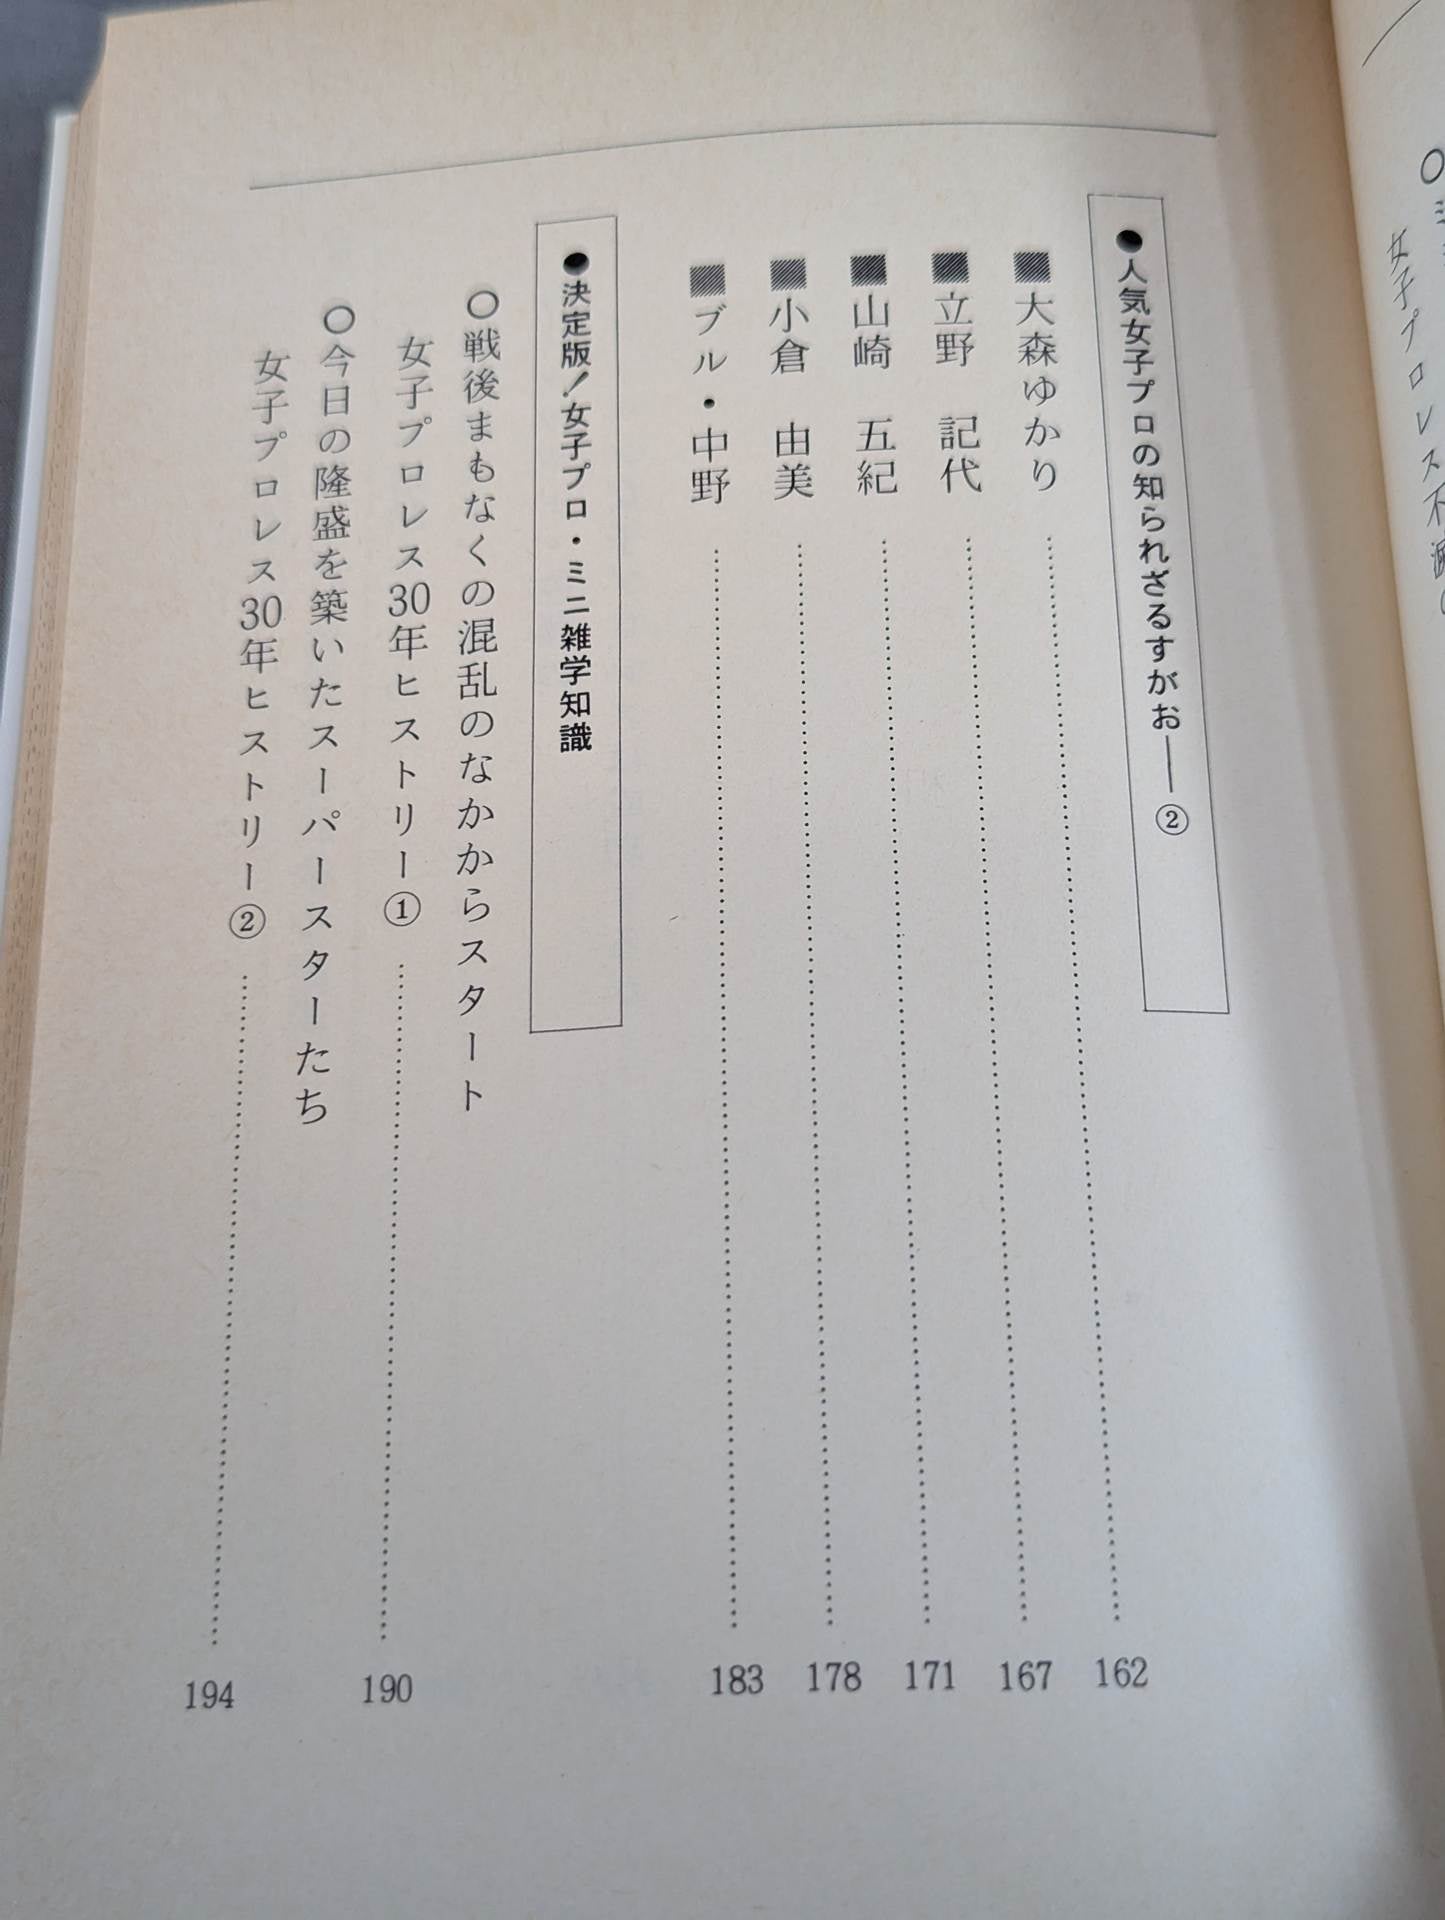 ●人気女子プロの知られざるすがお——②
大森ゆかり……162
立野 記代……167
山崎 五紀……171
小倉 由美……178
ブル・中野……183
●決定版！女子プロ・ミニ雑学知識
○戦後まもなくの混乱のなかからスタート
女子プロレス30年ヒストリー①……190
○今日の隆盛を築いたスーパースターたち
女子プロレス30年ヒストリー②……194
女子プロレス不滅